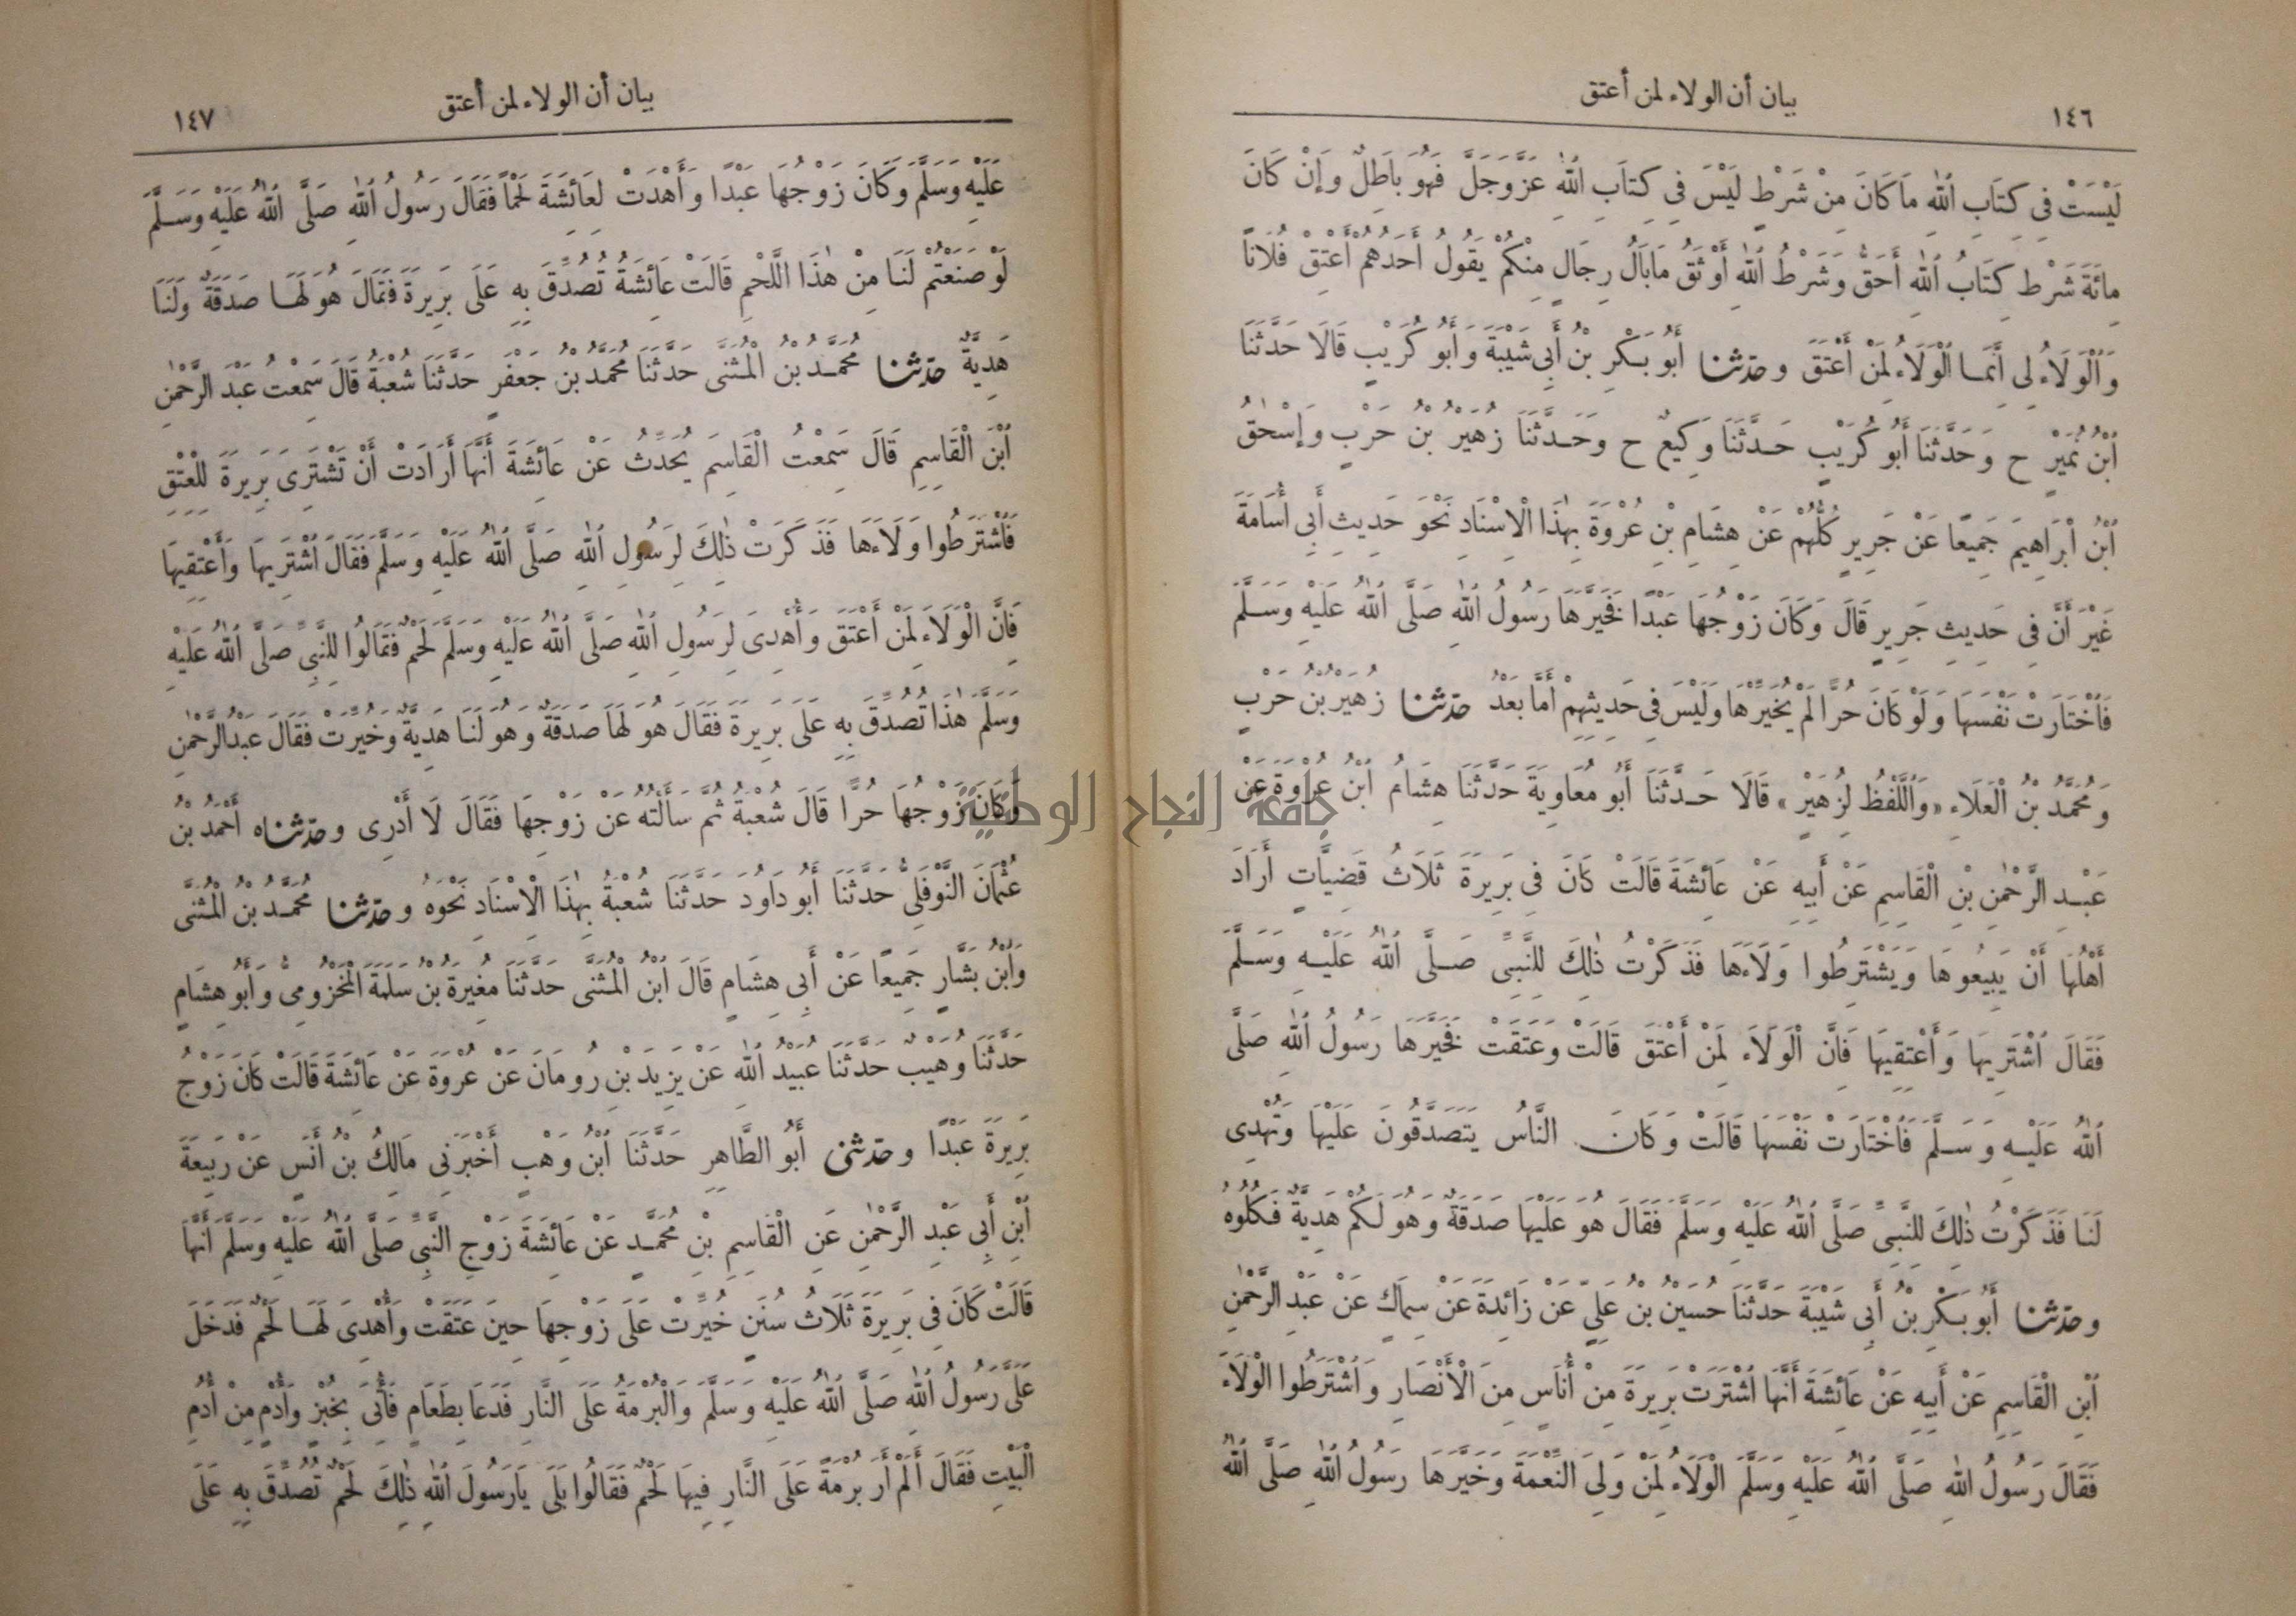 ١٤٦
بيان أن الولاء لمن أعتق
لَيْسَتْ فِى كِتَابِ اللّٰهِ مَا كَانَ مِنْ شَرْطٍ لَيْسَ فِى كِتَابِ اللّٰهِ عَزَّ وَجَلَّ فَهُوَ بَاطِلٌ وَإِنْ كَانَ
مِائَةَ شَرْطٍ كِتَابُ اللّٰهِ أَحَقُّ وَشَرْطُ اللّٰهِ أَوْثَقُ مَابَالُ رِجَالٍ مِنْكُمْ يَقُولُ أَحَدُهُمْ أَعْتِقْ فُلَانًا
وَالْوَلَاءُ لِى إِنَّمَا الْوَلَاءُ لِمَنْ أَعْتَقَ وحَدَّثَنَا أَبُو بَكْرِ بْنُ أَبِى شَيْبَةَ وَأَبُو كُرَيْبٍ قَالَا حَدَّثَنَا
ابْنُ نُمَيْرٍ ح وَحَدَّثَنَا أَبُو كُرَيْبٍ حَدَّثَنَا وَكِيعٌ ح وَحَدَّثَنَا زُهَيْرُ بْنُ حَرْبٍ وَإِسْحٰقُ
ابْنُ إِبْرَاهِيمَ جَمِيعًا عَنْ جَرِيرٍ كُلُّهُمْ عَنْ هِشَامِ بْنِ عُرْوَةَ بِهٰذَا الْإِسْنَادِ نَحْوَ حَدِيثِ أَبِى أُسَامَةَ
غَيْرَ أَنَّ فِى حَدِيثِ جَرِيرٍ قَالَ وَكَانَ زَوْجُهَا عَبْدًا فَخَيَّرَهَا رَسُولُ اللّٰهِ صَلَّى اللّٰهُ عَلَيْهِ وَسَلَّمَ
فَاخْتَارَتْ نَفْسَهَا وَلَوْ كَانَ حُرًّا لَمْ يُخَيِّرْهَا وَلَيْسَ فِى حَدِيثِهِمْ أَمَّا بَعْدُ حَدَّثَنَا زُهَيْرُ بْنُ حَرْبٍ
وَمُحَمَّدُ بْنُ الْعَلَاءِ «وَاللَّفْظُ لِزُهَيْرٍ» قَالَا حَدَّثَنَا أَبُو مُعَاوِيَةَ حَدَّثَنَا هِشَامُ ابْنُ عُرْوَةَ عَنْ
عَبْدِ الرَّحْمٰنِ بْنِ الْقَاسِمِ عَنْ أَبِيهِ عَنْ عَائِشَةَ قَالَتْ كَانَ فِى بَرِيرَةَ ثَلَاثُ قَضِيَّاتٍ أَرَادَ
أَهْلُهَا أَنْ يَبِيعُوهَا وَيَشْتَرِطُوا وَلَاءَهَا فَذَكَرْتُ ذٰلِكَ لِلنَّبِىِّ صَلَّى اللّٰهُ عَلَيْهِ وَسَلَّمَ
فَقَالَ اشْتَرِيهَا وَأَعْتِقِيهَا فَإِنَّ الْوَلَاءَ لِمَنْ أَعْتَقَ قَالَتْ وَعَتَقَتْ فَخَيَّرَهَا رَسُولُ اللّٰهِ صَلَّى
اللّٰهُ عَلَيْهِ وَسَلَّمَ فَاخْتَارَتْ نَفْسَهَا قَالَتْ وَكَانَ النَّاسُ يَتَصَدَّقُونَ عَلَيْهَا وَتُهْدِى
لَنَا فَذَكَرْتُ ذٰلِكَ لِلنَّبِىِّ صَلَّى اللّٰهُ عَلَيْهِ وَسَلَّمَ فَقَالَ هُوَ عَلَيْهَا صَدَقَةٌ وَهُوَ لَكُمْ هَدِيَّةٌ فَكُلُوهُ
وحَدَّثَنَا أَبُو بَكْرِ بْنُ أَبِى شَيْبَةَ حَدَّثَنَا حُسَيْنُ بْنُ عَلِىٍّ عَنْ زَائِدَةَ عَنْ سِمَاكٍ عَنْ عَبْدِ الرَّحْمٰنِ
ابْنِ الْقَاسِمِ عَنْ أَبِيهِ عَنْ عَائِشَةَ أَنَّهَا اشْتَرَتْ بَرِيرَةَ مِنْ أُنَاسٍ مِنَ الْأَنْصَارِ وَاشْتَرَطُوا الْوَلَاءَ
فَقَالَ رَسُولُ اللّٰهِ صَلَّى اللّٰهُ عَلَيْهِ وَسَلَّمَ الْوَلَاءُ لِمَنْ وَلِىَ النِّعْمَةَ وَخَيَّرَهَا رَسُولُ اللّٰهِ صَلَّى اللّٰهُ
بيان أن الولاء لمن أعتق
١٤٧
عَلَيْهِ وَسَلَّمَ وَكَانَ زَوْجُهَا عَبْدًا وَأَهْدَتْ لِعَائِشَةَ لَحْمًا فَقَالَ رَسُولُ اللّٰهِ صَلَّى اللّٰهُ عَلَيْهِ وَسَلَّمَ
لَوْ صَنَعْتُمْ لَنَا مِنْ هٰذَا اللَّحْمِ قَالَتْ عَائِشَةُ تُصُدِّقَ بِهِ عَلَى بَرِيرَةَ فَقَالَ هُوَ لَهَا صَدَقَةٌ وَلَنَا
هَدِيَّةٌ حَدَّثَنَا مُحَمَّدُ بْنُ الْمُثَنَّى حَدَّثَنَا مُحَمَّدُ بْنُ جَعْفَرٍ حَدَّثَنَا شُعْبَةُ قَالَ سَمِعْتُ عَبْدَ الرَّحْمٰنِ
ابْنَ الْقَاسِمِ قَالَ سَمِعْتُ الْقَاسِمَ يُحَدِّثُ عَنْ عَائِشَةَ أَنَّهَا أَرَادَتْ أَنْ تَشْتَرِىَ بَرِيرَةَ لِلْعِتْقِ
فَاشْتَرَطُوا وَلَاءَهَا فَذَكَرَتْ ذٰلِكَ لِرَسُولِ اللّٰهِ صَلَّى اللّٰهُ عَلَيْهِ وَسَلَّمَ فَقَالَ اشْتَرِيهَا وَأَعْتِقِيهَا
فَإِنَّ الْوَلَاءَ لِمَنْ أَعْتَقَ وَأُهْدِىَ لِرَسُولِ اللّٰهِ صَلَّى اللّٰهُ عَلَيْهِ وَسَلَّمَ لَحْمٌ فَقَالُوا لِلنَّبِىِّ صَلَّى اللّٰهُ عَلَيْهِ
وَسَلَّمَ هٰذَا تُصُدِّقَ بِهِ عَلَى بَرِيرَةَ فَقَالَ هُوَ لَهَا صَدَقَةٌ وَهُوَ لَنَا هَدِيَّةٌ وَخُيِّرَتْ فَقَالَ عَبْدُ الرَّحْمٰنِ
وَكَانَ زَوْجُهَا حُرًّا قَالَ شُعْبَةُ ثُمَّ سَأَلْتُهُ عَنْ زَوْجِهَا فَقَالَ لَا أَدْرِى وحَدَّثَنَاه أَحْمَدُ بْنُ
عُثْمَانَ النَّوْفَلِىُّ حَدَّثَنَا أَبُو دَاوُدَ حَدَّثَنَا شُعْبَةُ بِهٰذَا الْإِسْنَادِ نَحْوَهُ وحَدَّثَنَا مُحَمَّدُ بْنُ الْمُثَنَّى
وَابْنُ بَشَّارٍ جَمِيعًا عَنْ أَبِى هِشَامٍ قَالَ ابْنُ الْمُثَنَّى حَدَّثَنَا مُغِيرَةُ بْنُ سَلَمَةَ الْمَخْزُومِىُّ وَأَبُو هِشَامٍ
حَدَّثَنَا وُهَيْبٌ حَدَّثَنَا عُبَيْدُ اللّٰهِ عَنْ يَزِيدَ بْنِ رُومَانَ عَنْ عُرْوَةَ عَنْ عَائِشَةَ قَالَتْ كَانَ زَوْجُ
بَرِيرَةَ عَبْدًا وحَدَّثَنِى أَبُو الطَّاهِرِ حَدَّثَنَا ابْنُ وَهْبٍ أَخْبَرَنِى مَالِكُ بْنُ أَنَسٍ عَنْ رَبِيعَةَ
ابْنِ أَبِى عَبْدِ الرَّحْمٰنِ عَنِ الْقَاسِمِ بْنِ مُحَمَّدٍ عَنْ عَائِشَةَ زَوْجِ النَّبِىِّ صَلَّى اللّٰهُ عَلَيْهِ وَسَلَّمَ أَنَّهَا
قَالَتْ كَانَ فِى بَرِيرَةَ ثَلَاثُ سُنَنٍ خُيِّرَتْ عَلَى زَوْجِهَا حِينَ عَتَقَتْ وَأُهْدِىَ لَهَا لَحْمٌ فَدَخَلَ
عَلَىَّ رَسُولُ اللّٰهِ صَلَّى اللّٰهُ عَلَيْهِ وَسَلَّمَ وَالْبُرْمَةُ عَلَى النَّارِ فَدَعَا بِطَعَامٍ فَأُتِىَ بِخُبْزٍ وَأُدْمٍ مِنْ أُدُمِ
الْبَيْتِ فَقَالَ أَلَمْ أَرَ بُرْمَةً عَلَى النَّارِ فِيهَا لَحْمٌ فَقَالُوا بَلَى يَا رَسُولَ اللّٰهِ ذٰلِكَ لَحْمٌ تُصُدِّقَ بِهِ عَلَى
جامعة النجاح الوطنية